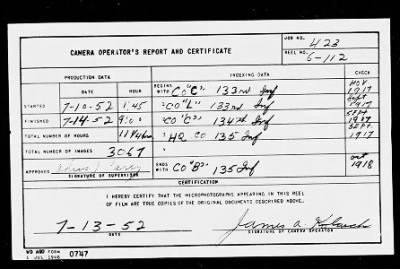 JOB NO. 423
CAMERA OPERATOR'S REPORT AND CERTIFICATE
REEL NO. 6-112
PRODUCTION DATA
INDEXING DATA
CHECK
DATE HOUR
BEGINS WITH Co "C" 133rd Inf Nov 1917
STARTED 7-10-52 1:45 "CO "L" 133rd Inf Sept 1917
FINISHED 7-14-52 9:00 "CO "C" 134th Inf Sept 1917
TOTAL NUMBER OF HOURS "HQ CO 135 Inf Sept. 1917
TOTAL NUMBER OF IMAGES 3067
APPROVED
SIGNATURE OF SUPERVISOR
ENDS WITH Co "B" 135 Inf Oct 1918
CERTIFICATION
I HEREBY CERTIFY THAT THE MICROPHOTOGRAPHS APPEARING IN THIS REEL
OF FILM ARE TRUE COPIES OF THE ORIGINAL DOCUMENTS DESCRIBED ABOVE.
7-13-52
DATE
James A.
SIGNATURE OF CAMERA OPERATOR
WD AGO FORM 0747
1 JUL 1946